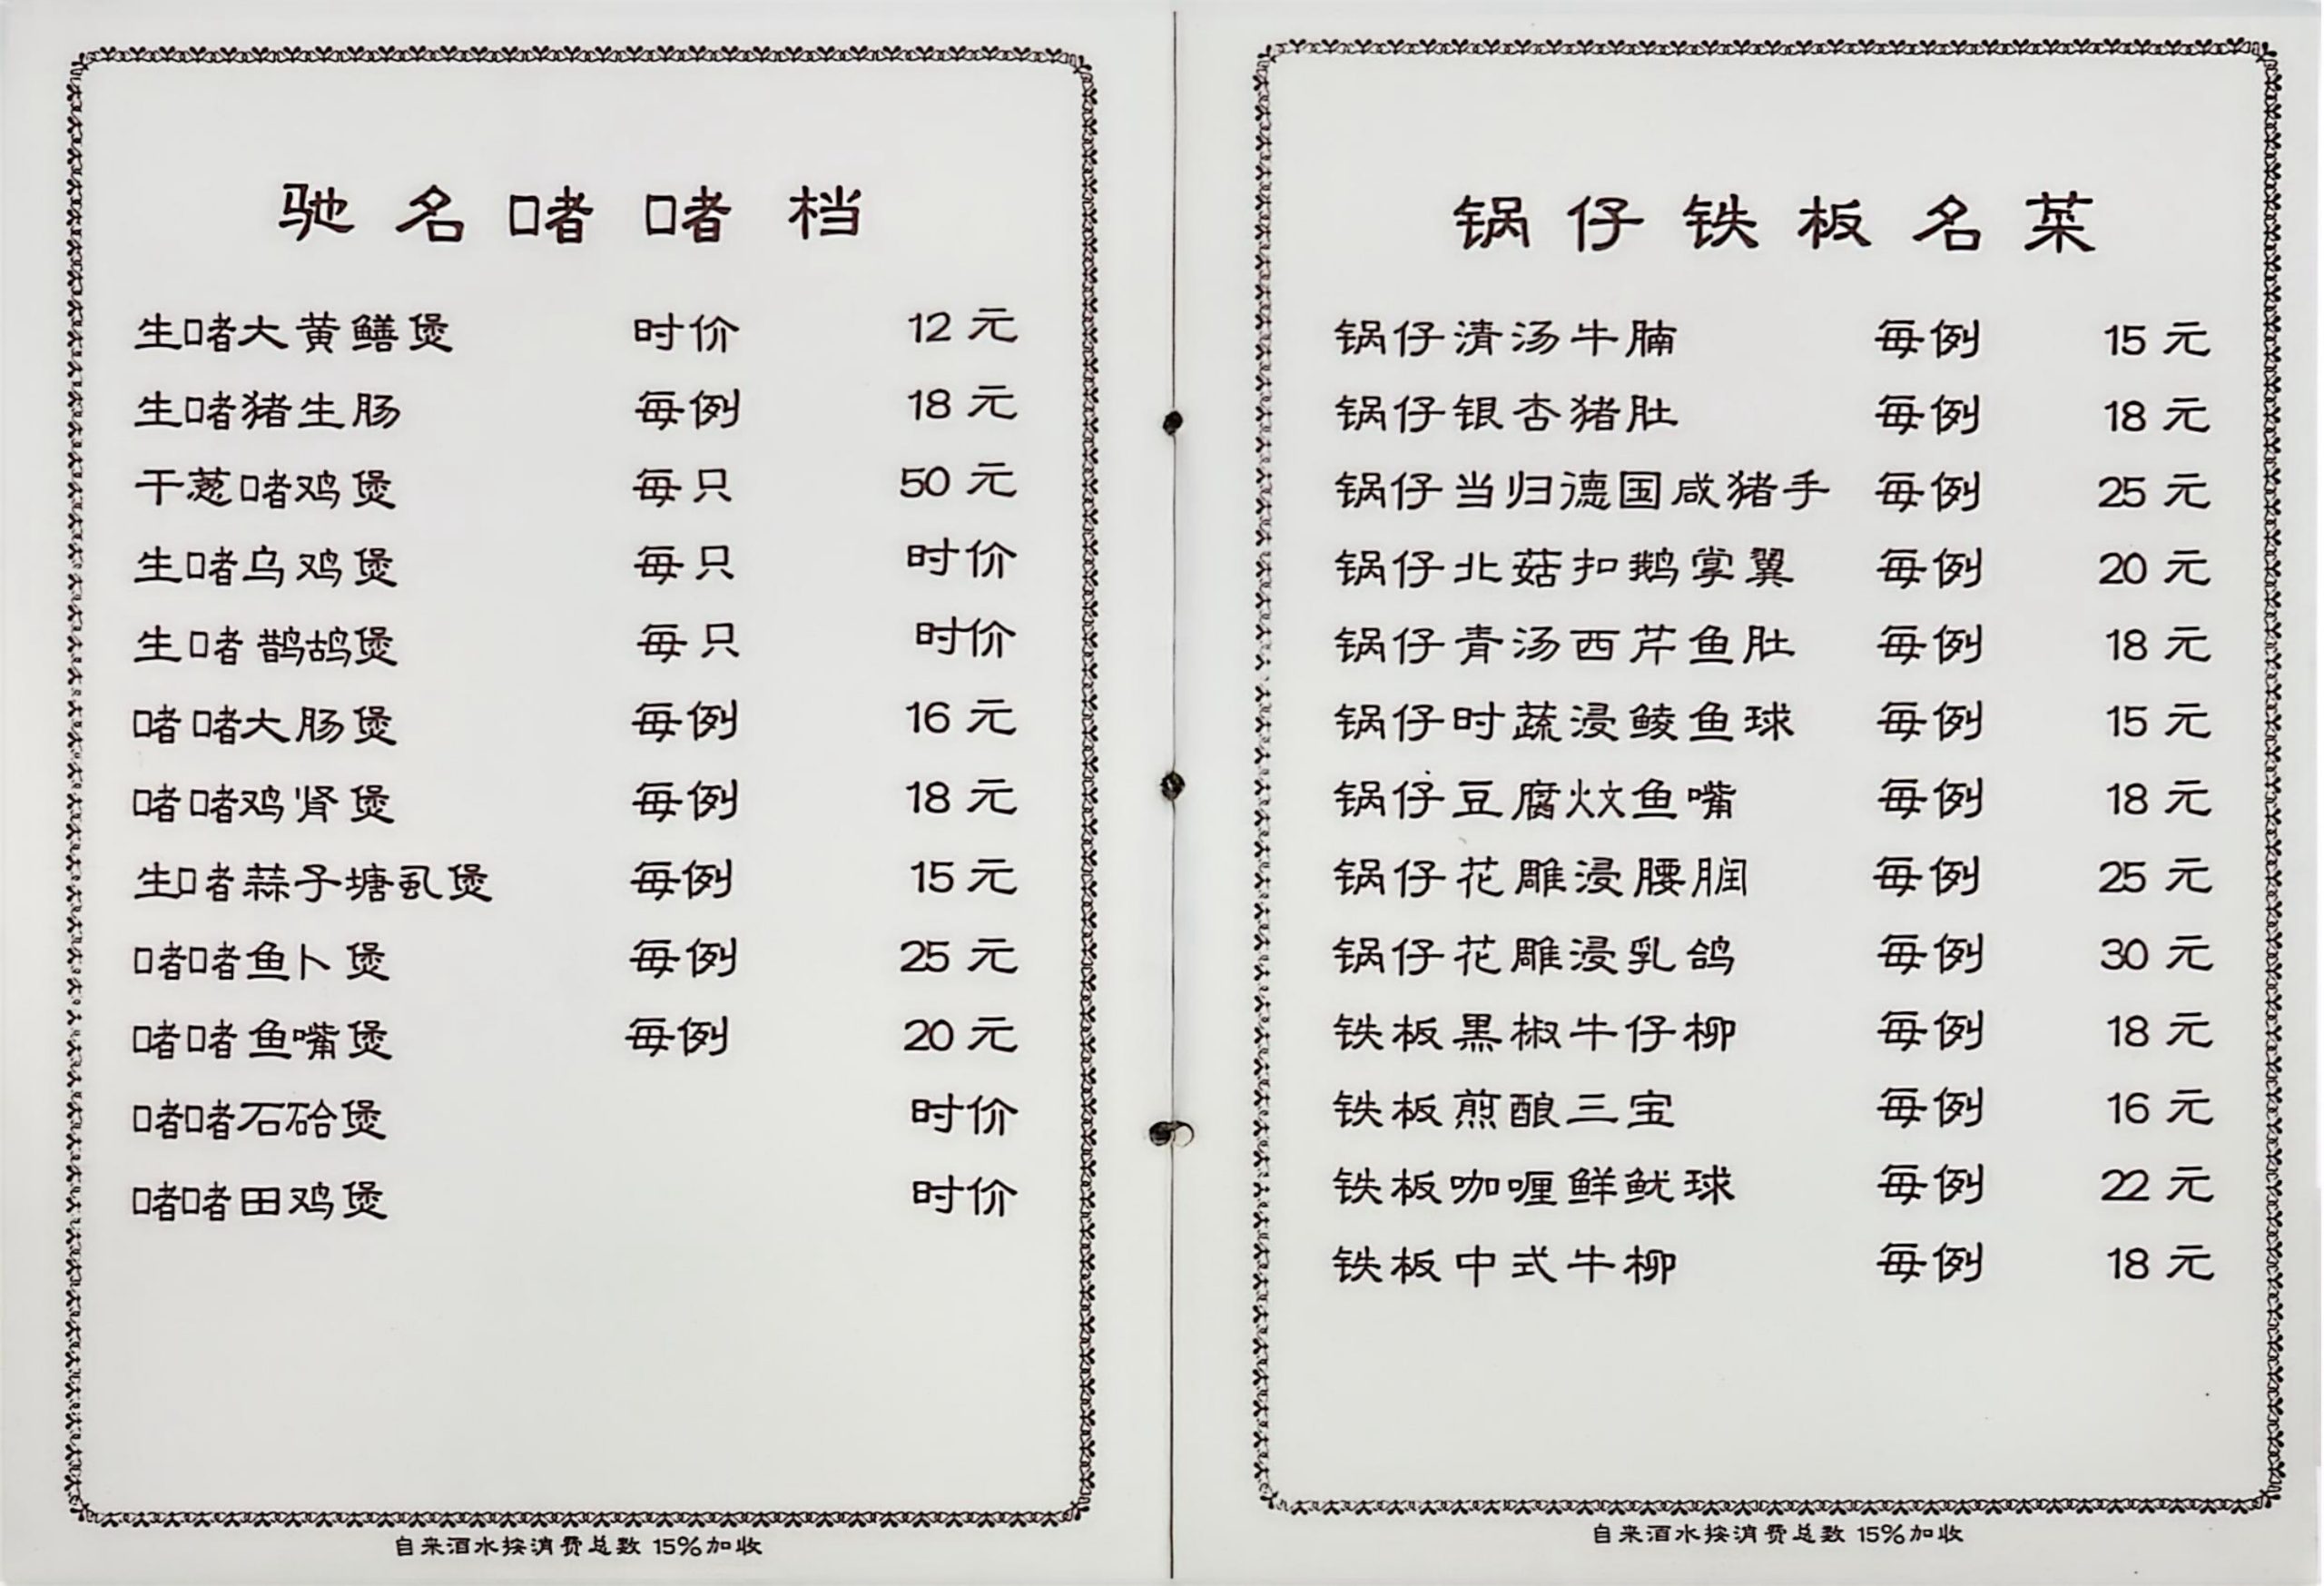 驰名啫啫档
生啫大黄鳝煲 时价 12元
生啫猪生肠 每例 18元
干葱啫鸡煲 每只 50元
生啫乌鸡煲 每只 时价
生啫鹊鸪煲 每只 时价
啫啫大肠煲 每例 16元
啫啫鸡肾煲 每例 18元
生啫蒜子塘虱煲 每例 15元
啫啫鱼卜煲 每例 25元
啫啫鱼嘴煲 每例 20元
啫啫石硆煲 时价
啫啫田鸡煲 时价
自来酒水按消费总数15%加收
锅仔铁板名菜
锅仔清汤牛腩 每例 15元
锅仔银杏猪肚 每例 18元
锅仔当归德国咸猪手 每例 25元
锅仔北菇扣鹅掌翼 每例 20元
锅仔青汤西芹鱼肚 每例 18元
锅仔时蔬浸鲮鱼球 每例 15元
锅仔豆腐炆鱼嘴 每例 18元
锅仔花雕浸腰膶 每例 25元
锅仔花雕浸乳鸽 每例 30元
铁板黑椒牛仔柳 每例 18元
铁板煎酿三宝 每例 16元
铁板咖喱鲜鱿球 每例 22元
铁板中式牛柳 每例 18元
自来酒水按消费总数15%加收